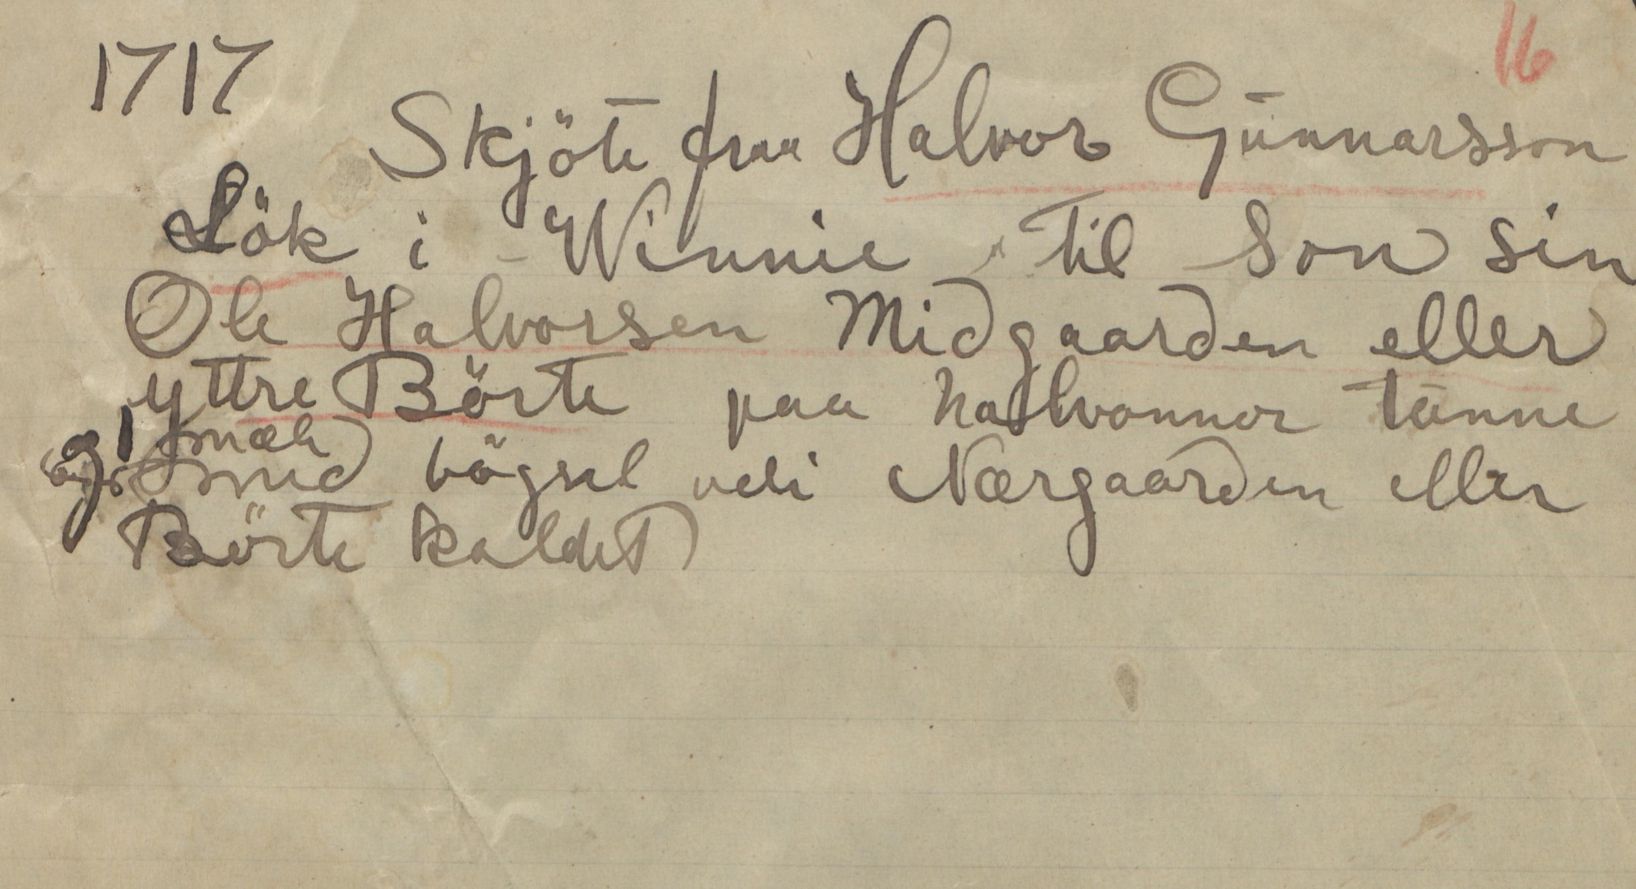 16
1717
Skjöte fraa Halvor Gunnarsson
Lök i Winnie til Son sin
Ole Halvorsen Midgaarden eller
yttre Börte paa halvannor tunne
smæh
med bögsel udi Nærgaarden eller
Börte kaldet